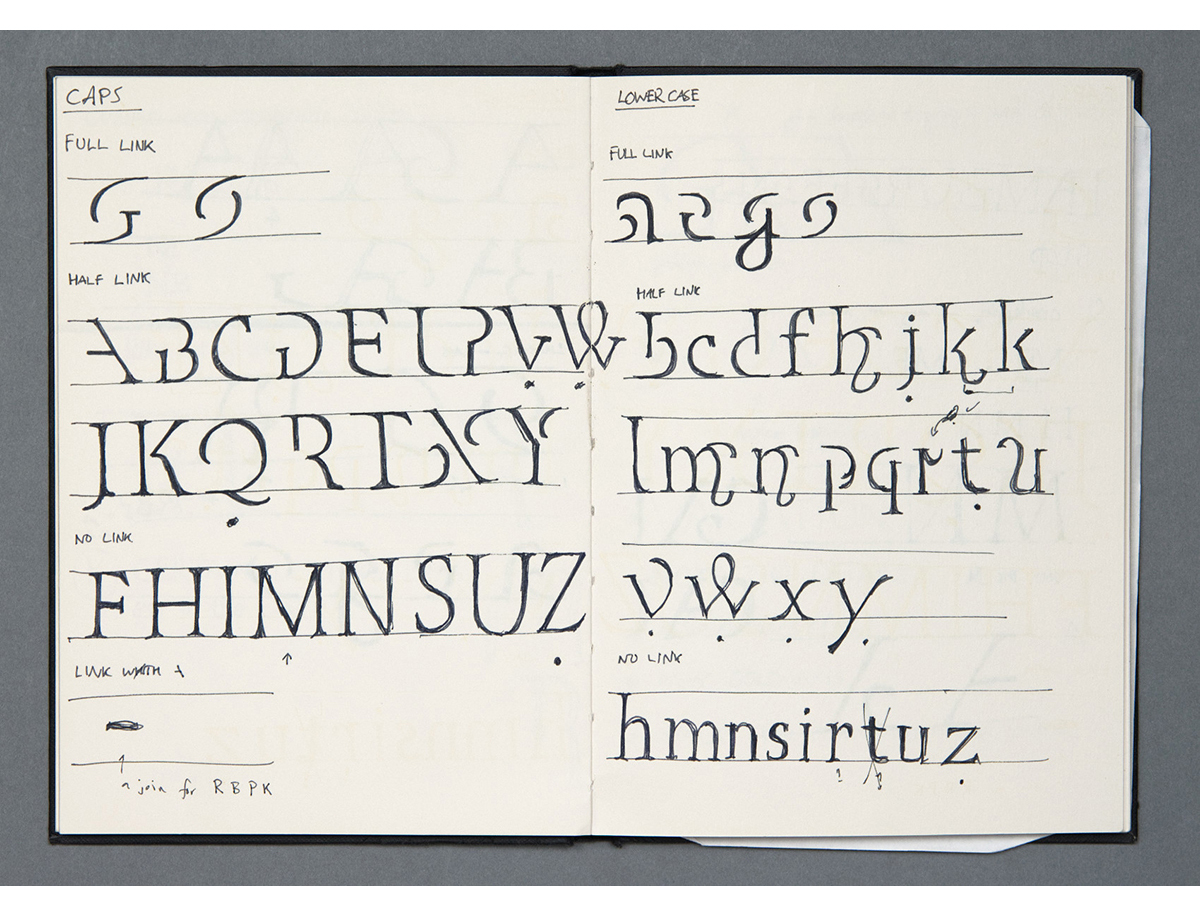 CAPS
FULL LINK
G O
HALF LINK
A B C D E L P V W
J K Q R T X Y
NO LINK
F H I M N S U Z
LINK WITH A
join for R B P K
LOWER CASE
FULL LINK
a e g o
HALF LINK
b c d f h j k k
l m n p q r t u
v w x y
NO LINK
h m n s i r t u z